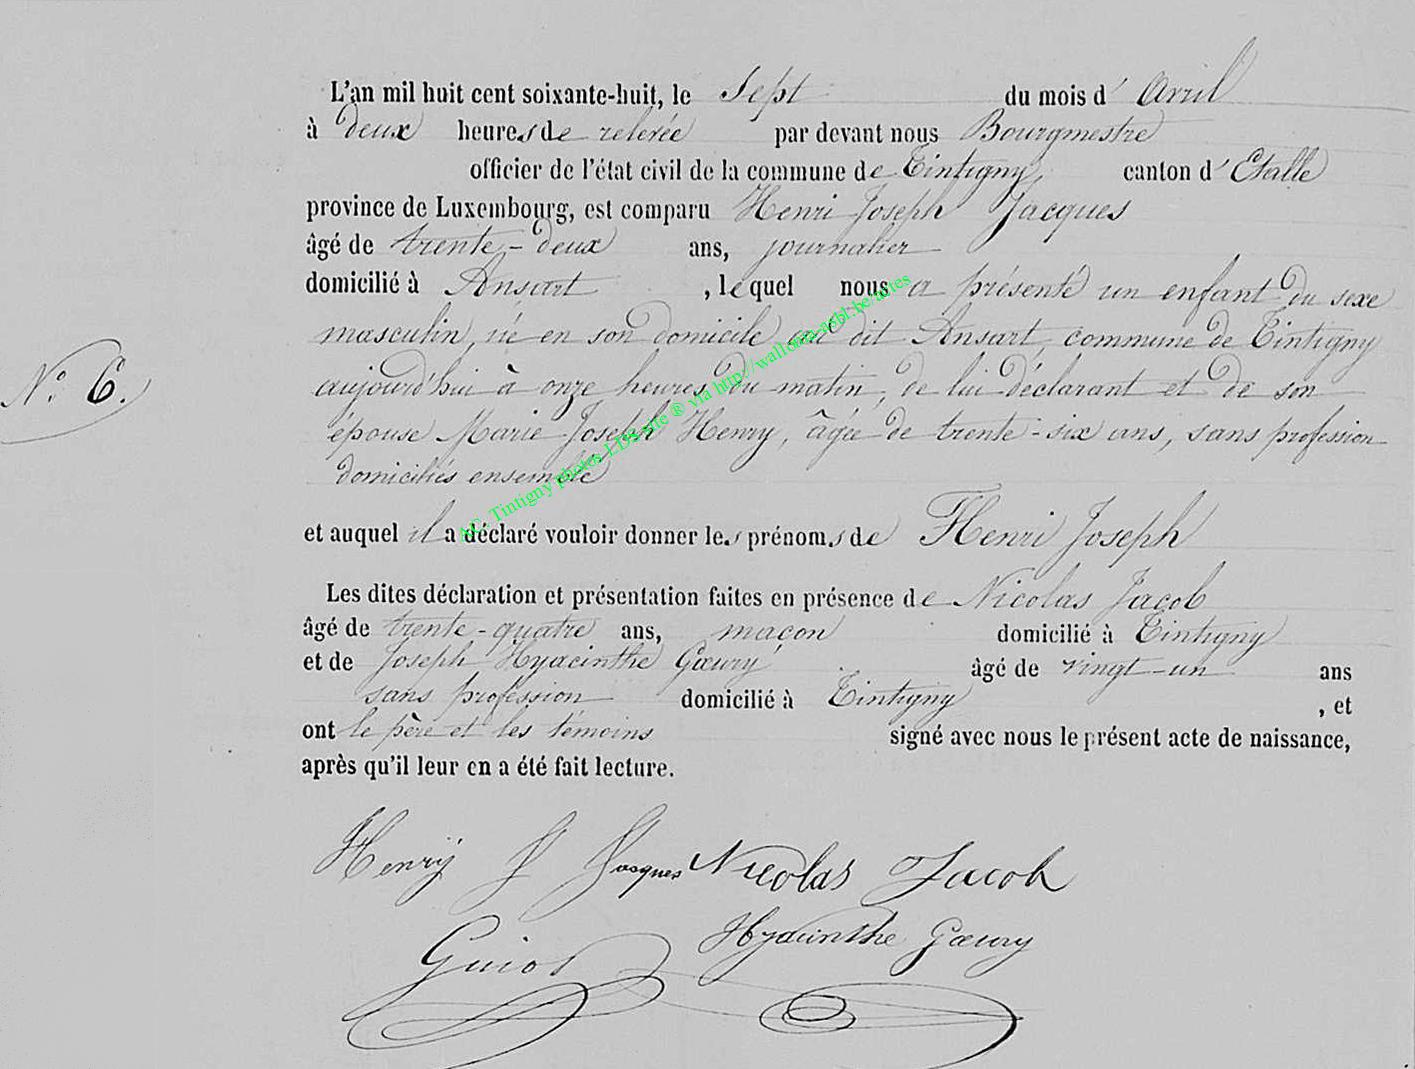 L'an mil huit cent soixante-huit, le Sept du mois d' Avril
à deux heures de relevée par devant nous Bourgmestre
officier de l'état civil de la commune de Tintigny, canton d' Etalle
province de Luxembourg, est comparu Henri Joseph Jacques
âgé de trente-deux ans, journalier
domicilié à Ansart , lequel nous a présenté un enfant du sexe
masculin, né en son domicile au dit Ansart, commune de Tintigny
N.° 6. aujourd'hui à onze heures du matin, de lui déclarant et de son
épouse Marie Joseph Henry, âgée de trente-six ans, sans profession
domiciliés ensemble
et auquel il a déclaré vouloir donner les prénoms de Henri Joseph
Les dites déclaration et présentation faites en présence de Nicolas Jacob
âgé de trente-quatre ans, maçon domicilié à Tintigny
et de Joseph Hyacinthe Gœury, âgé de vingt-un ans
sans profession domicilié à Tintigny , et
ont le père et les témoins signé avec nous le présent acte de naissance,
après qu'il leur en a été fait lecture.
Henrÿ J Jacques Nicolas Jacob
Guiot Hyacinthe Gœury
AC. Tintigny photos LDS site ® via http://wallonia-asbl.be/actes